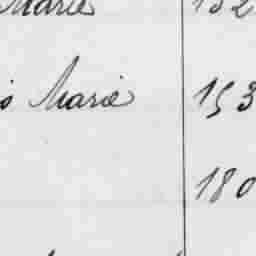 Marie 132
s Marie 153
180